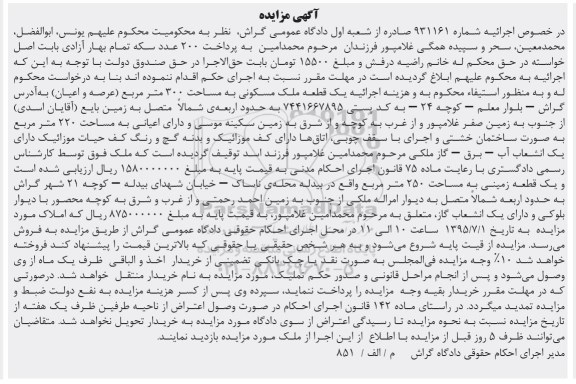 آگهی مزایده
در خصوص اجرائیه شماره 931161 صادره از شعبه اول دادگاه عمومی گراش، نظر به محکومیت محکوم علیهم یونس، ابوالفضل،
محمدمعین، سحر و سپیده همگی غلامپور فرزندان مرحوم محمدامین به پرداخت 200 عدد سکه تمام بهار آزادی بابت اصل
خواسته در حق محکم لـه خانم راضیه درفش و مبلغ 15500 تومان بابت حق‌الاجرا در حق صندوق دولت با توجه به این که
اجرائیه به محکوم علیهم ابلاغ گردیده است در مهلت مقرر نسبت به اجرای حکم اقدام ننموده اند بنا به درخواست محکوم
له و به منظور استیفاء محکوم به و هزینه اجرائیه یک قطعه ملک مسکونی به مساحت 300 متر مربع (عرصه و اعیان) به‌آدرس
گراش – بلوار معلم – کوچه 24 – به کد پستی 7441667895 به حدود اربعه‌ی شمالاً متصل به زمین بایع (آقایان اسدی)
از جنوب به زمین صفر غلامپور و از غرب به کوچه و از شرق به زمین سکینه موسی و دارای اعیانی به مساحت 220 متر مربع
به صورت ساختمان خشتی و اجرای با سقف چوبی، اتاق‌ها دارای کف موزائیک و بدنه گچ و رنگ کف حیات موزائیک دارای
یک انشعاب آب – برق – گاز ملکی مرحوم محمدامین غلامپور فرزند اسد توقیف گردیده است که ملک فوق توسط کارشناس
رسمی دادگستری با رعایت ماده 75 قانون اجرای احکام مدنی به قیمت پایه به مبلغ 1580000000 ریال ارزیابی شده است
و یک قطعه زمینی به مساحت 250 متر مربع واقع در بیدله محله‌ی ناساک – خیابان شهدای بیدله – کوچه 21 شهر گراش
به حدود اربعه شمالاً متصل به دیوار امراله ملکی از جنوب به زمین احمد رحمتی و از غرب و شرق به کوچه محصور با دیوار
بلوکی و دارای یک انشعاب گاز، متعلق به مرحوم محمدامین غلامپور، به قیمت پایه به مبلغ 875000000 ریال که املاک مورد
مزایده به تاریخ 1395/7/1 ساعت 10 الی 11 در محل اجرای احکام حقوقی دادگاه عمومی گراش از طریق مزایده به فروش
می‌رسد. مزایده از قیمت پایه شروع می‌شود و به هر شخص حقیقی یا حقوقی که بالاترین قیمت را پیشنهاد کند فروخته
خواهد شد 10٪ وجه مزایده فی‌المجلس به صورت نقد یا چک بانکی تضمینی از خریدار اخذ و الباقی ظرف یک ماه از وی
وصول می‌شود و پس از انجام مراحل قانونی و صدور حکم تملیک، مورد مزایده به نام خریدار منتقل خواهد شد. درصورتی
که در مهلت مقرر خریدار بقیه وجه مزایده را پرداخت ننماید، سپرده وی پس از کسر هزینه مزایده به نفع دولت ضبط و
مزایده تمدید میگردد. در راستای ماده 142 قانون اجرای احکام در صورت وصول اعتراض از ناحیه طرفین ظرف یک هفته از
تاریخ مزایده نسبت به نحوه مزایده تا رسیدگی اعتراض از سوی دادگاه مورد مزایده به خریدار تحویل نخواهد شد. متقاضیان
می‌توانند ظرف 5 روز قبل از مزایده با اطلاع از این اجرا از ملک مورد مزایده بازدید نمایند.
مدیر اجرای احکام حقوقی دادگاه گراش م / الف / 851